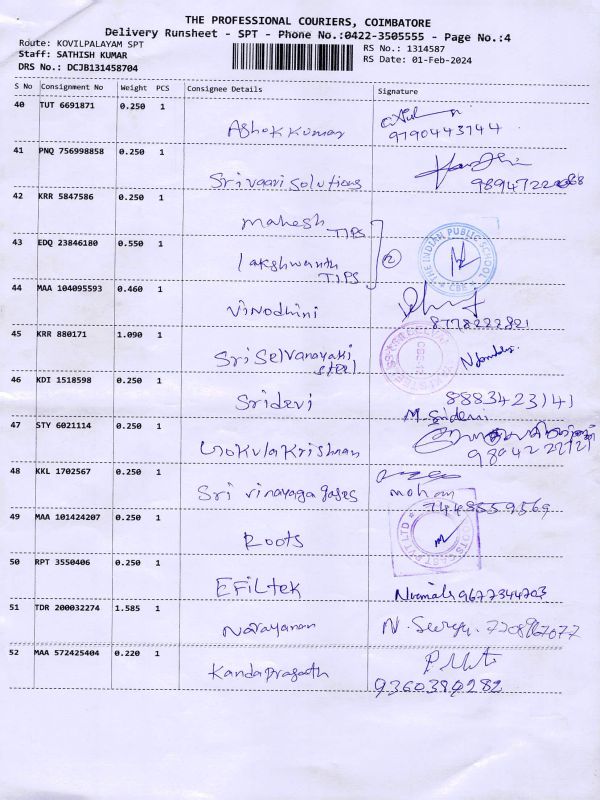 THE PROFESSIONAL COURIERS, COIMBATORE
Delivery Runsheet - SPT - Phone No.:0422-3505555 - Page No.:4
Route: KOVILPALAYAM SPT
Staff: SATHISH KUMAR
DRS No.: DCJB131458704
RS No.: 1314587
RS Date: 01-Feb-2024
S No Consignment No Weight PCS Consignee Details Signature
40 TUT 6691871 0.250 1
Ashok Kumar 9790443744
41 PNQ 756998858 0.250 1
Sri vaari Solutions
42 KRR 5847586 0.250 1
Mahesh TIPS
43 EDQ 23846180 0.550 1
Lakshwanth TIPS
2
THE INDIAN PUBLIC SCHOOL
CBE
44 MAA 104095593 0.460 1
Vinodhini 8778222821
45 KRR 880171 1.090 1
Sri Selvanayaki Steel
46 KDI 1518598 0.250 1
Sridevi 8883423141
M. Sridevi
47 STY 6021114 0.250 1
Gokula Krishnan
48 KKL 1702567 0.250 1
Sri vinayaga gases mohan
7448559569
49 MAA 101424207 0.250 1
Roots
50 RPT 3550406 0.250 1
EFiLtek Nirmala 9677344703
51 TDR 200032274 1.585 1
Narayanan N.
52 MAA 572425404 0.220 1
Kandaprasath
9360389282